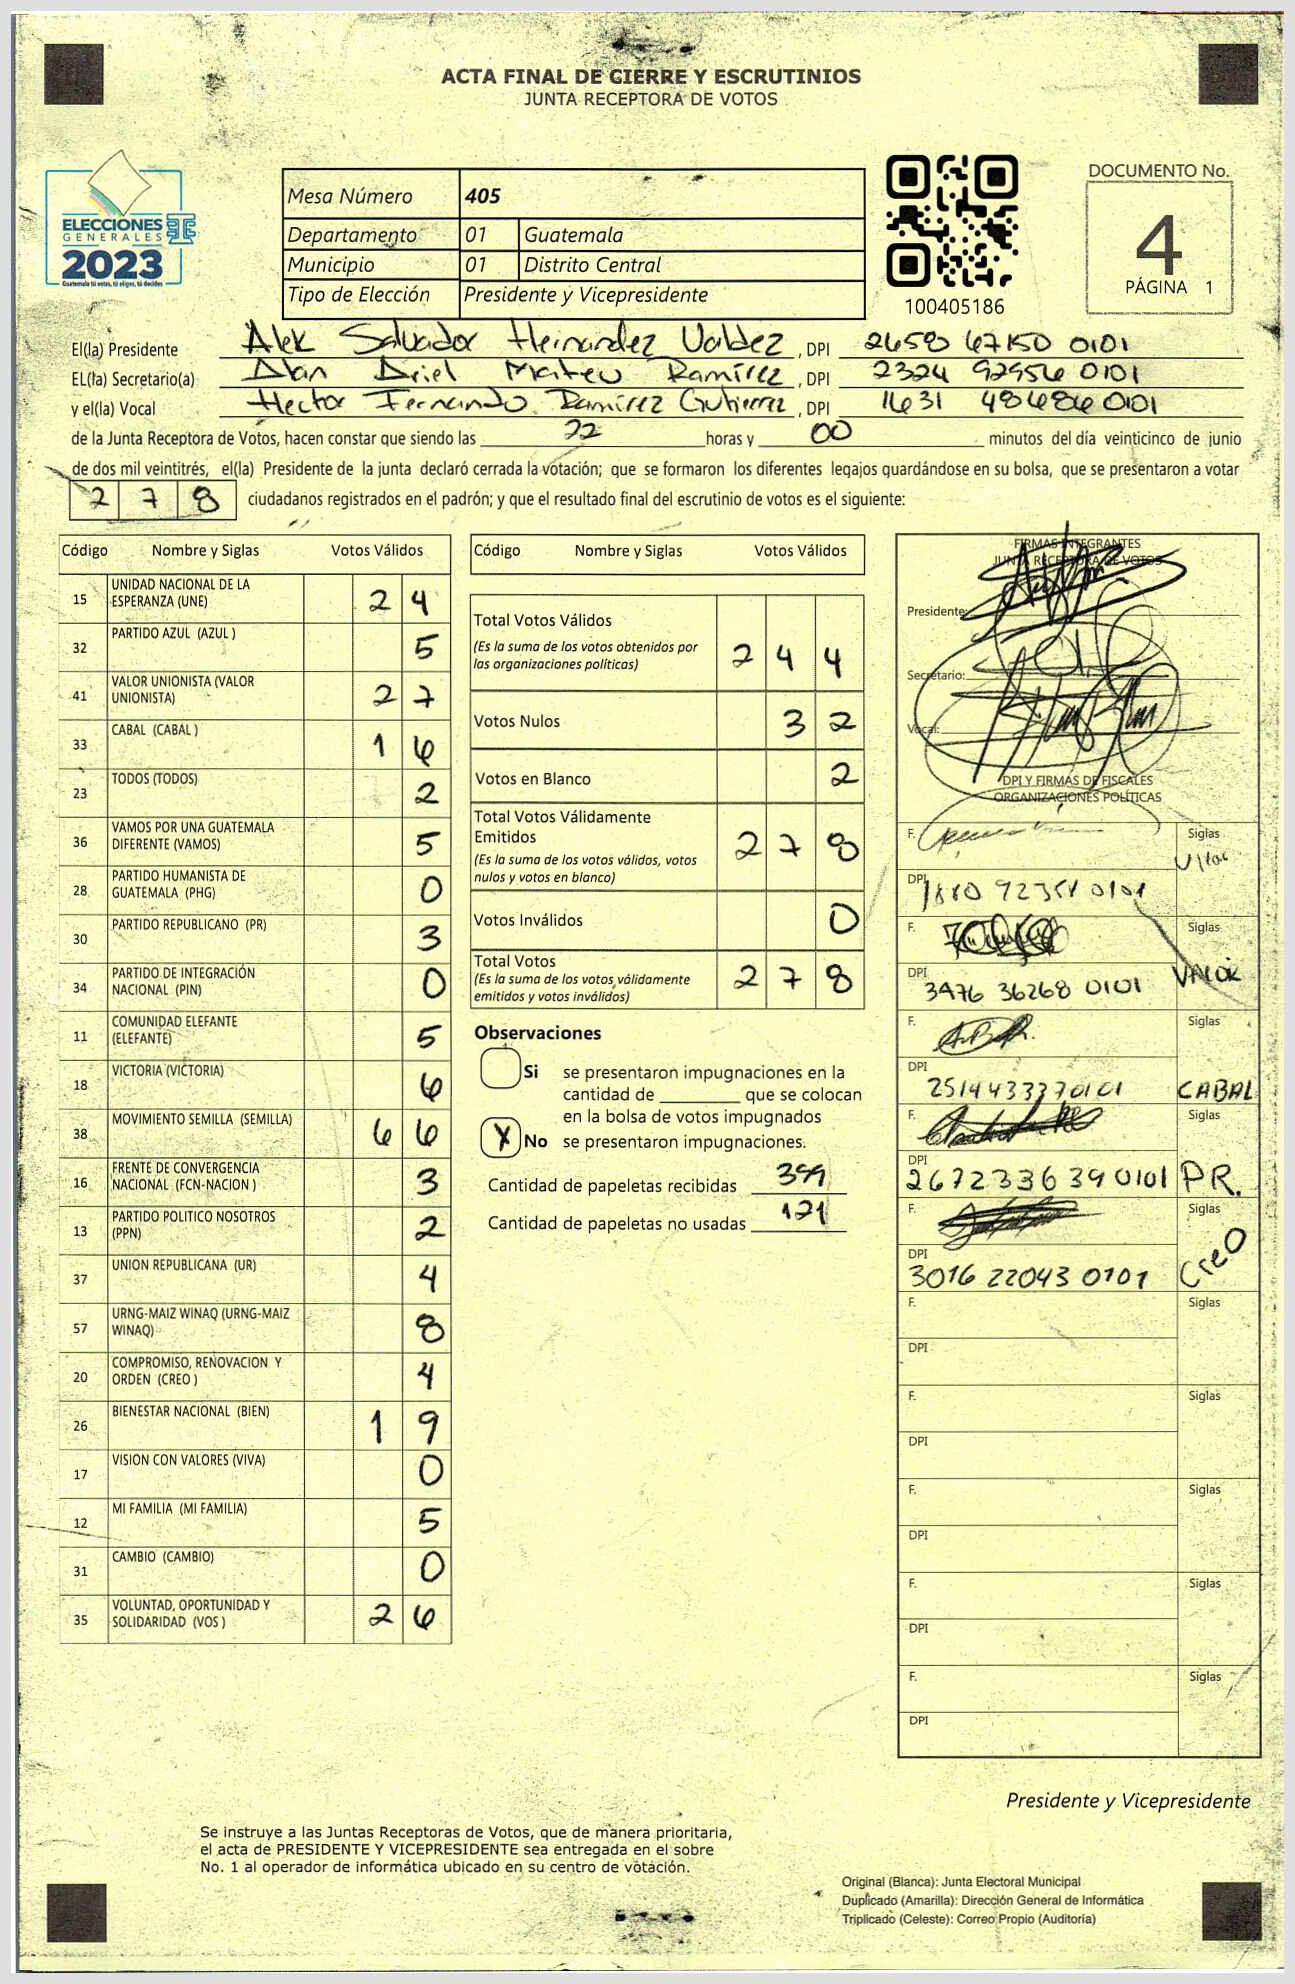 ACTA FINAL DE CIERRE Y ESCRUTINIOS
JUNTA RECEPTORA DE VOTOS
ELECCIONES
GENERALES
2023
Guatemala tú votas, tú eliges, tú decides
Mesa Número 405
Departamento 01 Guatemala
Municipio 01 Distrito Central
Tipo de Elección Presidente y Vicepresidente
100405186
DOCUMENTO No.
4
PÁGINA 1
El(la) Presidente Alek Salvador Hernandez Valdez, DPI 2658 67150 0101
EL(la) Secretario(a) Alan Ariel Mateu Ramírez, DPI 2324 92956 0101
y el(la) Vocal Hector Fernando Ramírez Gutierrez, DPI 1631 48686 0101
de la Junta Receptora de Votos, hacen constar que siendo las 22 horas y 00 minutos del día veinticinco de junio
de dos mil veintitrés, el(la) Presidente de la junta declaró cerrada la votación; que se formaron los diferentes legajos guardándose en su bolsa, que se presentaron a votar
278 ciudadanos registrados en el padrón; y que el resultado final del escrutinio de votos es el siguiente:
Código Nombre y Siglas Votos Válidos
15 UNIDAD NACIONAL DE LA ESPERANZA (UNE) 24
32 PARTIDO AZUL (AZUL ) 5
41 VALOR UNIONISTA (VALOR UNIONISTA) 27
33 CABAL (CABAL ) 16
23 TODOS (TODOS) 2
36 VAMOS POR UNA GUATEMALA DIFERENTE (VAMOS) 5
28 PARTIDO HUMANISTA DE GUATEMALA (PHG) 0
30 PARTIDO REPUBLICANO (PR) 3
34 PARTIDO DE INTEGRACIÓN NACIONAL (PIN) 0
11 COMUNIDAD ELEFANTE (ELEFANTE) 5
18 VICTORIA (VICTORIA) 6
38 MOVIMIENTO SEMILLA (SEMILLA) 66
16 FRENTE DE CONVERGENCIA NACIONAL (FCN-NACION ) 3
13 PARTIDO POLITICO NOSOTROS (PPN) 2
37 UNION REPUBLICANA (UR) 4
57 URNG-MAIZ WINAQ (URNG-MAIZ WINAQ) 8
20 COMPROMISO, RENOVACION Y ORDEN (CREO ) 4
26 BIENESTAR NACIONAL (BIEN) 19
17 VISION CON VALORES (VIVA) 0
12 MI FAMILIA (MI FAMILIA) 5
31 CAMBIO (CAMBIO) 0
35 VOLUNTAD, OPORTUNIDAD Y SOLIDARIDAD (VOS ) 26
Código Nombre y Siglas Votos Válidos
Total Votos Válidos 244
(Es la suma de los votos obtenidos por
las organizaciones políticas)
Votos Nulos 32
Votos en Blanco 2
Total Votos Válidamente
Emitidos 278
(Es la suma de los votos válidos, votos
nulos y votos en blanco)
Votos Inválidos 0
Total Votos 278
(Es la suma de los votos válidamente
emitidos y votos inválidos)
Observaciones
Si se presentaron impugnaciones en la
cantidad de ________ que se colocan
en la bolsa de votos impugnados
X No se presentaron impugnaciones.
Cantidad de papeletas recibidas 399
Cantidad de papeletas no usadas 121
FIRMAS INTEGRANTES
JUNTA RECEPTORA DE VOTOS
Presidente:
Secretario:
Vocal:
DPI Y FIRMAS DE FISCALES
ORGANIZACIONES POLÍTICAS
F. Siglas
DPI
F. Siglas
DPI 3476 36268 0101 VALOR
F. Siglas
DPI 2514433370101 CABAL
F. Siglas
DPI 2672336390101 PR.
F. Siglas
DPI 3016 22043 0101 CreO
F. Siglas
DPI
F. Siglas
DPI
F. Siglas
DPI
F. Siglas
DPI
F. Siglas
DPI
Presidente y Vicepresidente
Se instruye a las Juntas Receptoras de Votos, que de manera prioritaria,
el acta de PRESIDENTE Y VICEPRESIDENTE sea entregada en el sobre
No. 1 al operador de informática ubicado en su centro de votación.
Original (Blanca): Junta Electoral Municipal
Duplicado (Amarilla): Dirección General de Informática
Triplicado (Celeste): Correo Propio (Auditoría)